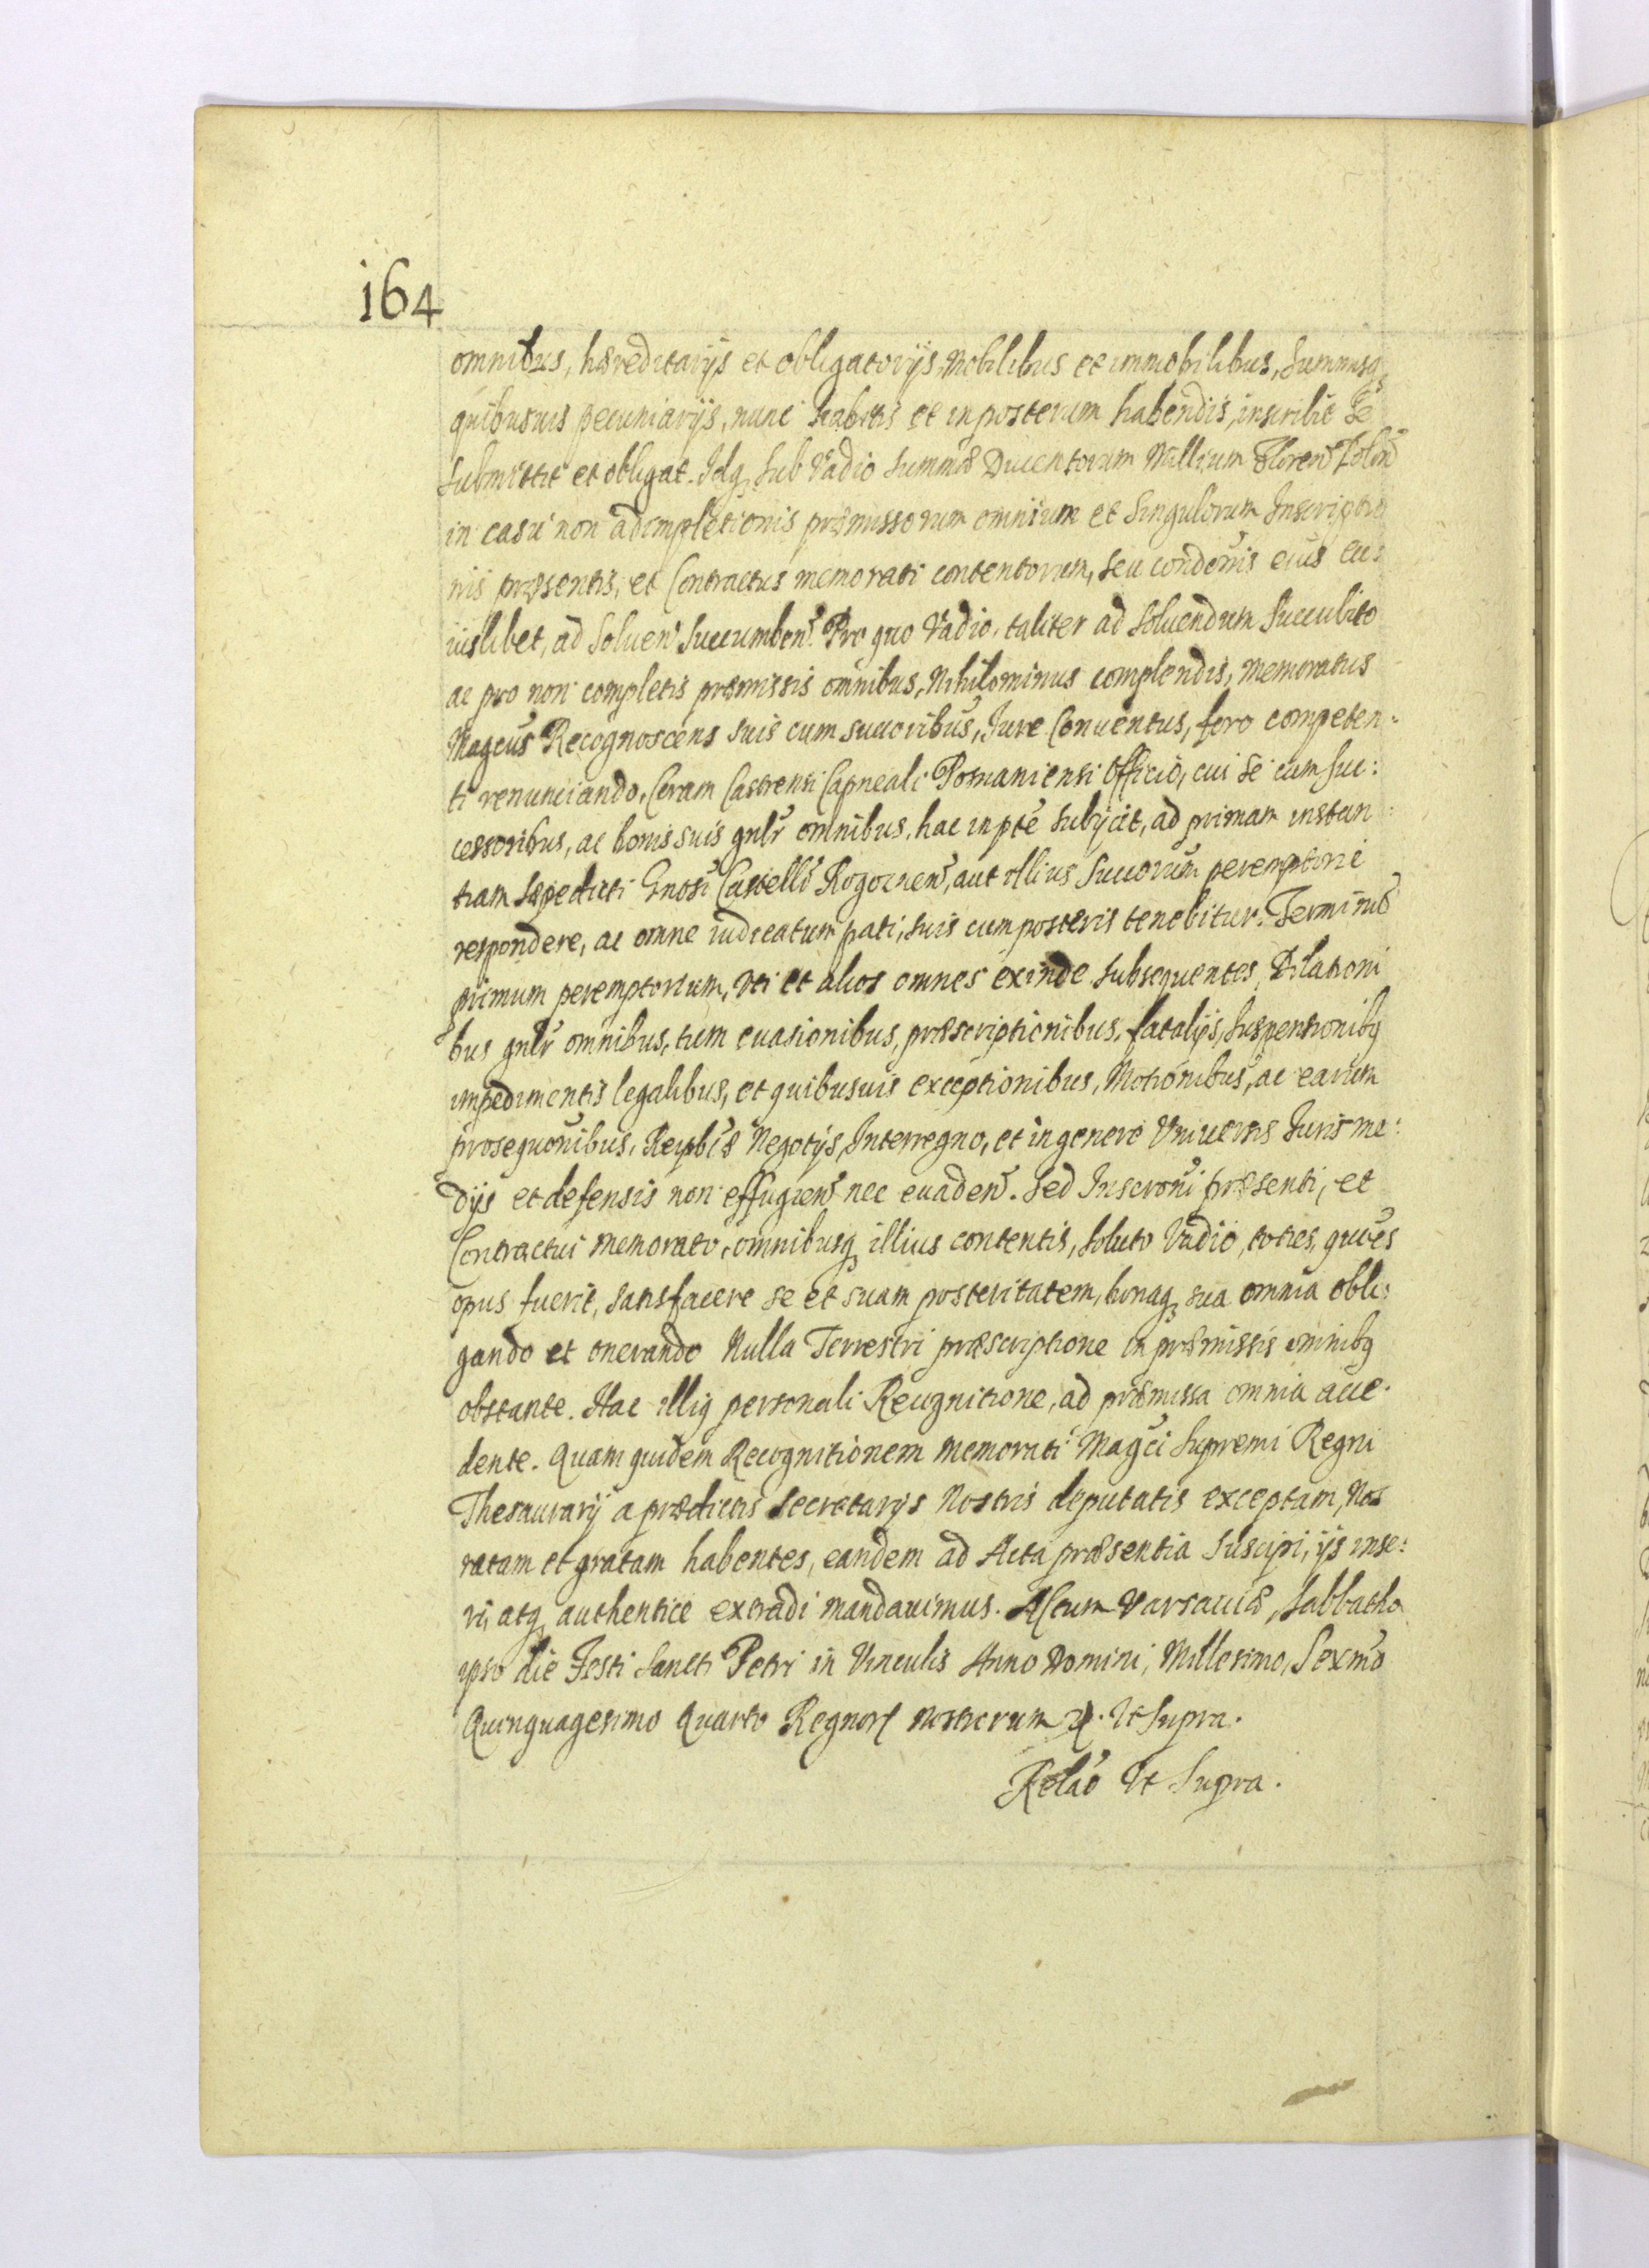 164
omnibus, hæreditarijs et obligatorijs, Mobilibus et immobilibus, summisq
quibusuis pecuniarijs, nunc habitis et inposterum habendis, inscribit Se
Submittit et obligat. Idq, Sub Vadio Summæ Ducentorum Millium Floren Polon
in casu non adimpletionis præmissorum omnium et Singulorum Inscriptio
nis præsentis, et Contractus memorati contentorum, seu condonis eius cu:
iuslibet, ad Soluen Succumben. Pro quo Vadio, taliter ad Soluendum Succubito
ac pro non completis præmissis omnibus, Nihilominus complendis, memoratus
Magcus Recognoscens suis cum succoribus, Iure Conuentus, foro competen:
ti renunciando, Coram Castrensi Capneali Posnaniensi Officio, cui se cum suc:
cessoribus, ac bonis suis gnlr omnibus, hac inpte Subijcit, ad primam instan:
tiam sæpedicti Gnosi Castelli Rogoznen, aut illius Succorum peremptorie
respondere, ac omne iudicatum pati, suis cum posteris tenebitur. Terminũ
primum peremptorium, Vti et alios omnes exinde subsequentes, Dilationi
bus gnlr omnibus, tum euasionibus, præscriptionibus, fatalijs, Suspensionibq
impedimentis legalibus, et quibusuis exceptionibus, Motionibus, ac earum
prosequonibus, Reipbcæ Negotijs, Interregno, et ingenere Vniuersis Iuris me:
dijs et defensis non effugien nec euaden. Sed Inscroni præsenti, et
Contractui memorato, omnibusq illius contentis, soluto Vadio, toties, quoes
opus fuerit, satisfacere se et suam posteritatem, bonaq sua omnia obli:
gando et onerando Nulla Terrestri præscriptione in præmissis omnibq
obstante. Hac illiq personali Recognitione, ad præmissa omnia acce:
dente. Quam quidem Recognitionem memorati Magci Supremi Regni
Thesaurarij a prædictis Secretarijs Nostris deputatis exceptam, Nos
ratam et gratam habentes, eandem ad Acta præsentia Suscipi, ijs inse:
ri, atq, authentice extradi mandauimus. Actum Varsauiæ, Sabbatho
ipso die Festi Sancti Petri in Vinculis Anno Domini, Millesimo, Sexmo
Quinquagesimo Quarto Regnor nostrorum Vt Supra.
Relao Vt Supra.